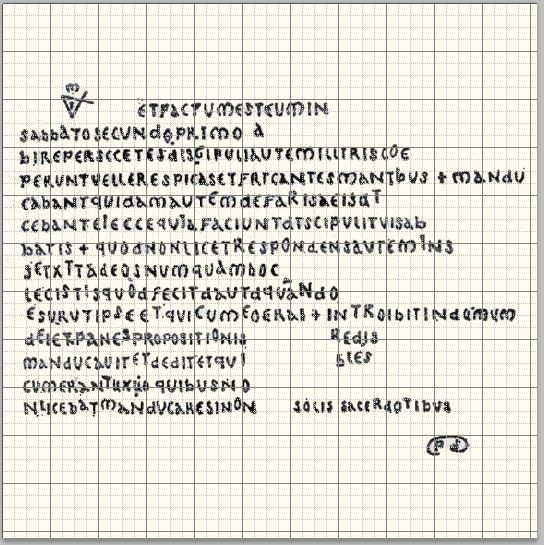 ETFACTUMESTEUMIN
SABBATOSECUNdOPRIMO A
bIREPERSCCETESdISCIPULIAUTEMILLIRISCOE
PERUNTVELLERESPICASETFRICANTESMANIbUS + MANdU
CABANTQUIDAMAUTEMdEFARISAEISdT
CEBANTEIECCEQUIAFACIUNTdTSCIPULITVISAb
bATIS + QUOdNONLICETRESPONdENSAUTEMINS
SETXTTAdEOSNUMQUAMhOC
LECISTISQUOdFECITdAUTdQUANdO
ESURUTIPSEETQUICUMEOERAI + INTROIBITINdOMUM
dEIETPANESPROPOSITIONIS REdIS
MANdUCAUITETdEdITETQUI bLES
CUMERANTUXUO QUIBUSNO
NLICEbATMANdUCARESINON SOLIS SACERdOTIbUS
Pd